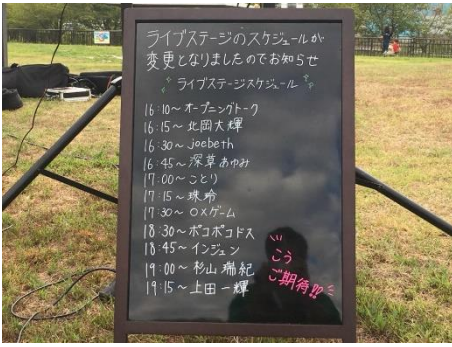 ライブステージのスケジュールが
変更となりましたのでお知らせ
ライブステージスケジュール
16:10〜オープニングトーク
16:15〜北岡大輝
16:30〜joebeth
16:45〜深草あゆみ
17:00〜ことり
17:15〜珠玲
17:30〜○×ゲーム
18:30〜ポコポコドス
18:45〜インジュン
19:00〜杉山瑞紀
19:15〜上田一輝
こう
ご期待!!